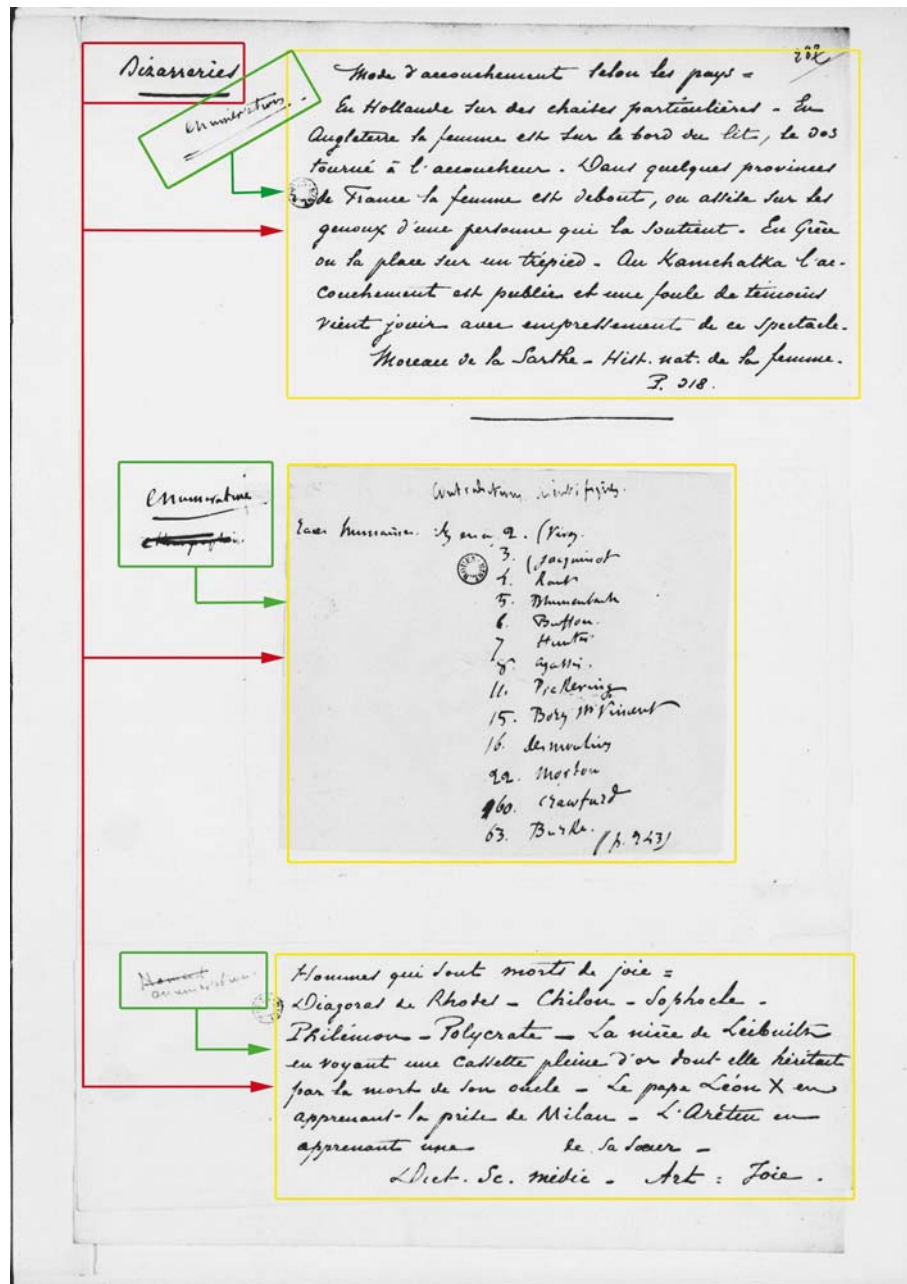 Bizarreries
202
enumérations.
Mode d'accouchement selon les pays =
En Hollande sur des chaises particulières - En
Angleterre la femme est sur le bord du lit, le dos
tourné à l'accoucheur. Dans quelques provinces
de France la femme est debout, ou assise sur les
genoux d'une personne qui la soutient. En Grèce
on la place sur un trépied. Au Kamchatka l'ac-
couchement est public et une foule de témoins
vient jouir avec empressement de ce spectacle.
Moreau de la Sarthe - Hist. nat. de la femme.
P. 218.
enumération
Contradictions scientifiques.
Races humaines. il y en a 2. (Virey.
3. (Jacquinot
4. Kant
5. Blumenbach
6. Buffon.
7 Hunter
8. Agassiz.
11. Pickering
15. Bory St Vincent
16. desmoulins
22. Morton
60. Crawfurd
63. Burke.
(p. 243)
enumération.
Hommes qui sont morts de joie =
Diagoras de Rhodes - Chilon - Sophocle -
Philémon - Polycrate - La nièce de Leibnitz
en voyant une cassette pleine d'or dont elle héritait
par la mort de son oncle - Le pape Léon X en
apprenant la prise de Milan - L'Arétin en
apprenant une de sa soeur -
Dict. Sc. médic - Art : Joie.